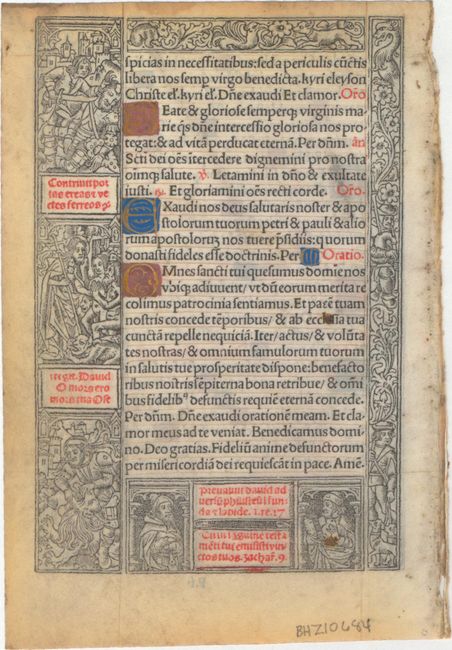 spicias in necessitatibus: sed a periculis cũctis
libera nos semp virgo benedicta. kyri eleyson
Christe el'. kyri el'. Dñe exaudi Et clamor. Orõ
Eate & gloriose semperq; virginis ma
rie q̃s dñe intercessio gloriosa nos pro
tegat: & ad vitã perducat eternã. Per dñm. añ
Scti dei oẽs ĩtercedere dignemini pro nostra
oĩmq; salute. ℣. Letamini in dño & exultate
iusti. ℟. Et gloriamini oẽs recti corde. Orõ.
Exaudi nos deus salutaris noster & apo
stolorum tuorum petri & pauli & alio
rum apostoloruȝ nos tuere p̃sidiis: quorum
donasti fideles esse doctrinis. Per. Oratio.
Omnes sancti tui quesumus domie nos
vbiq; adiuuent/ vt dũ eorum merita re
colimus patrocinia sentiamus. Et pacẽ tuam
nostris concede tẽporibus/ & ab ecclesia tua
cunctã repelle nequiciã. Iter/ actus/ & volũta
tes nostras/ & omnium famulorum tuorum
in salutis tue prosperitate dispone: benefacto
ribus nostris sẽpiterna bona retribue/ & omi
bus fidelibꝰ defunctis requiẽ eternã concede.
Per dñm. Dñe exaudi orationem meam. Et cla
mor meus ad te veniat. Benedicamus domi
no. Deo gratias. Fideliũ anime defunctorum
per misericordiã dei requiescãt in pace. Amẽ.
Contriuit por
tas ereas & ve
ctes ferreos
Dauid
O mors ero
mors tua Ose
preualuit dauid ad
uersũ philisteũ ĩ fun
da & lapide. i. re. 17
sanguine testa
mẽti tui emisisti vin
ctos tuos. zachar. 9.
BHZ10684